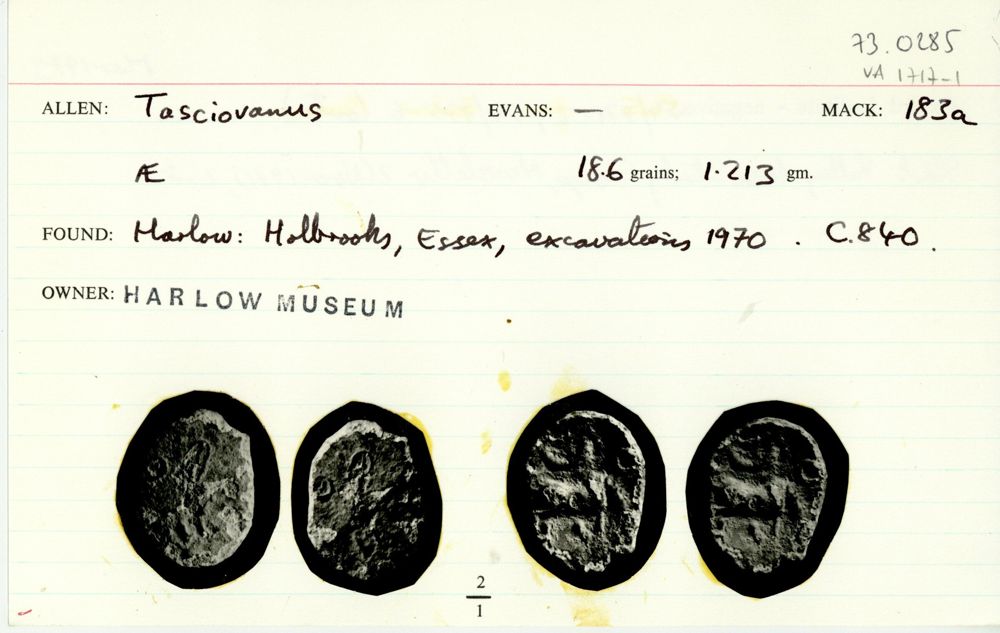 73.0285
VA 1717-1
ALLEN: Tasciovanus EVANS: — MACK: 183a
Æ 18.6 grains; 1.213 gm.
FOUND: Harlow: Holbrooks, Essex, excavations 1970 . C.840.
OWNER: HARLOW MUSEUM
2
1